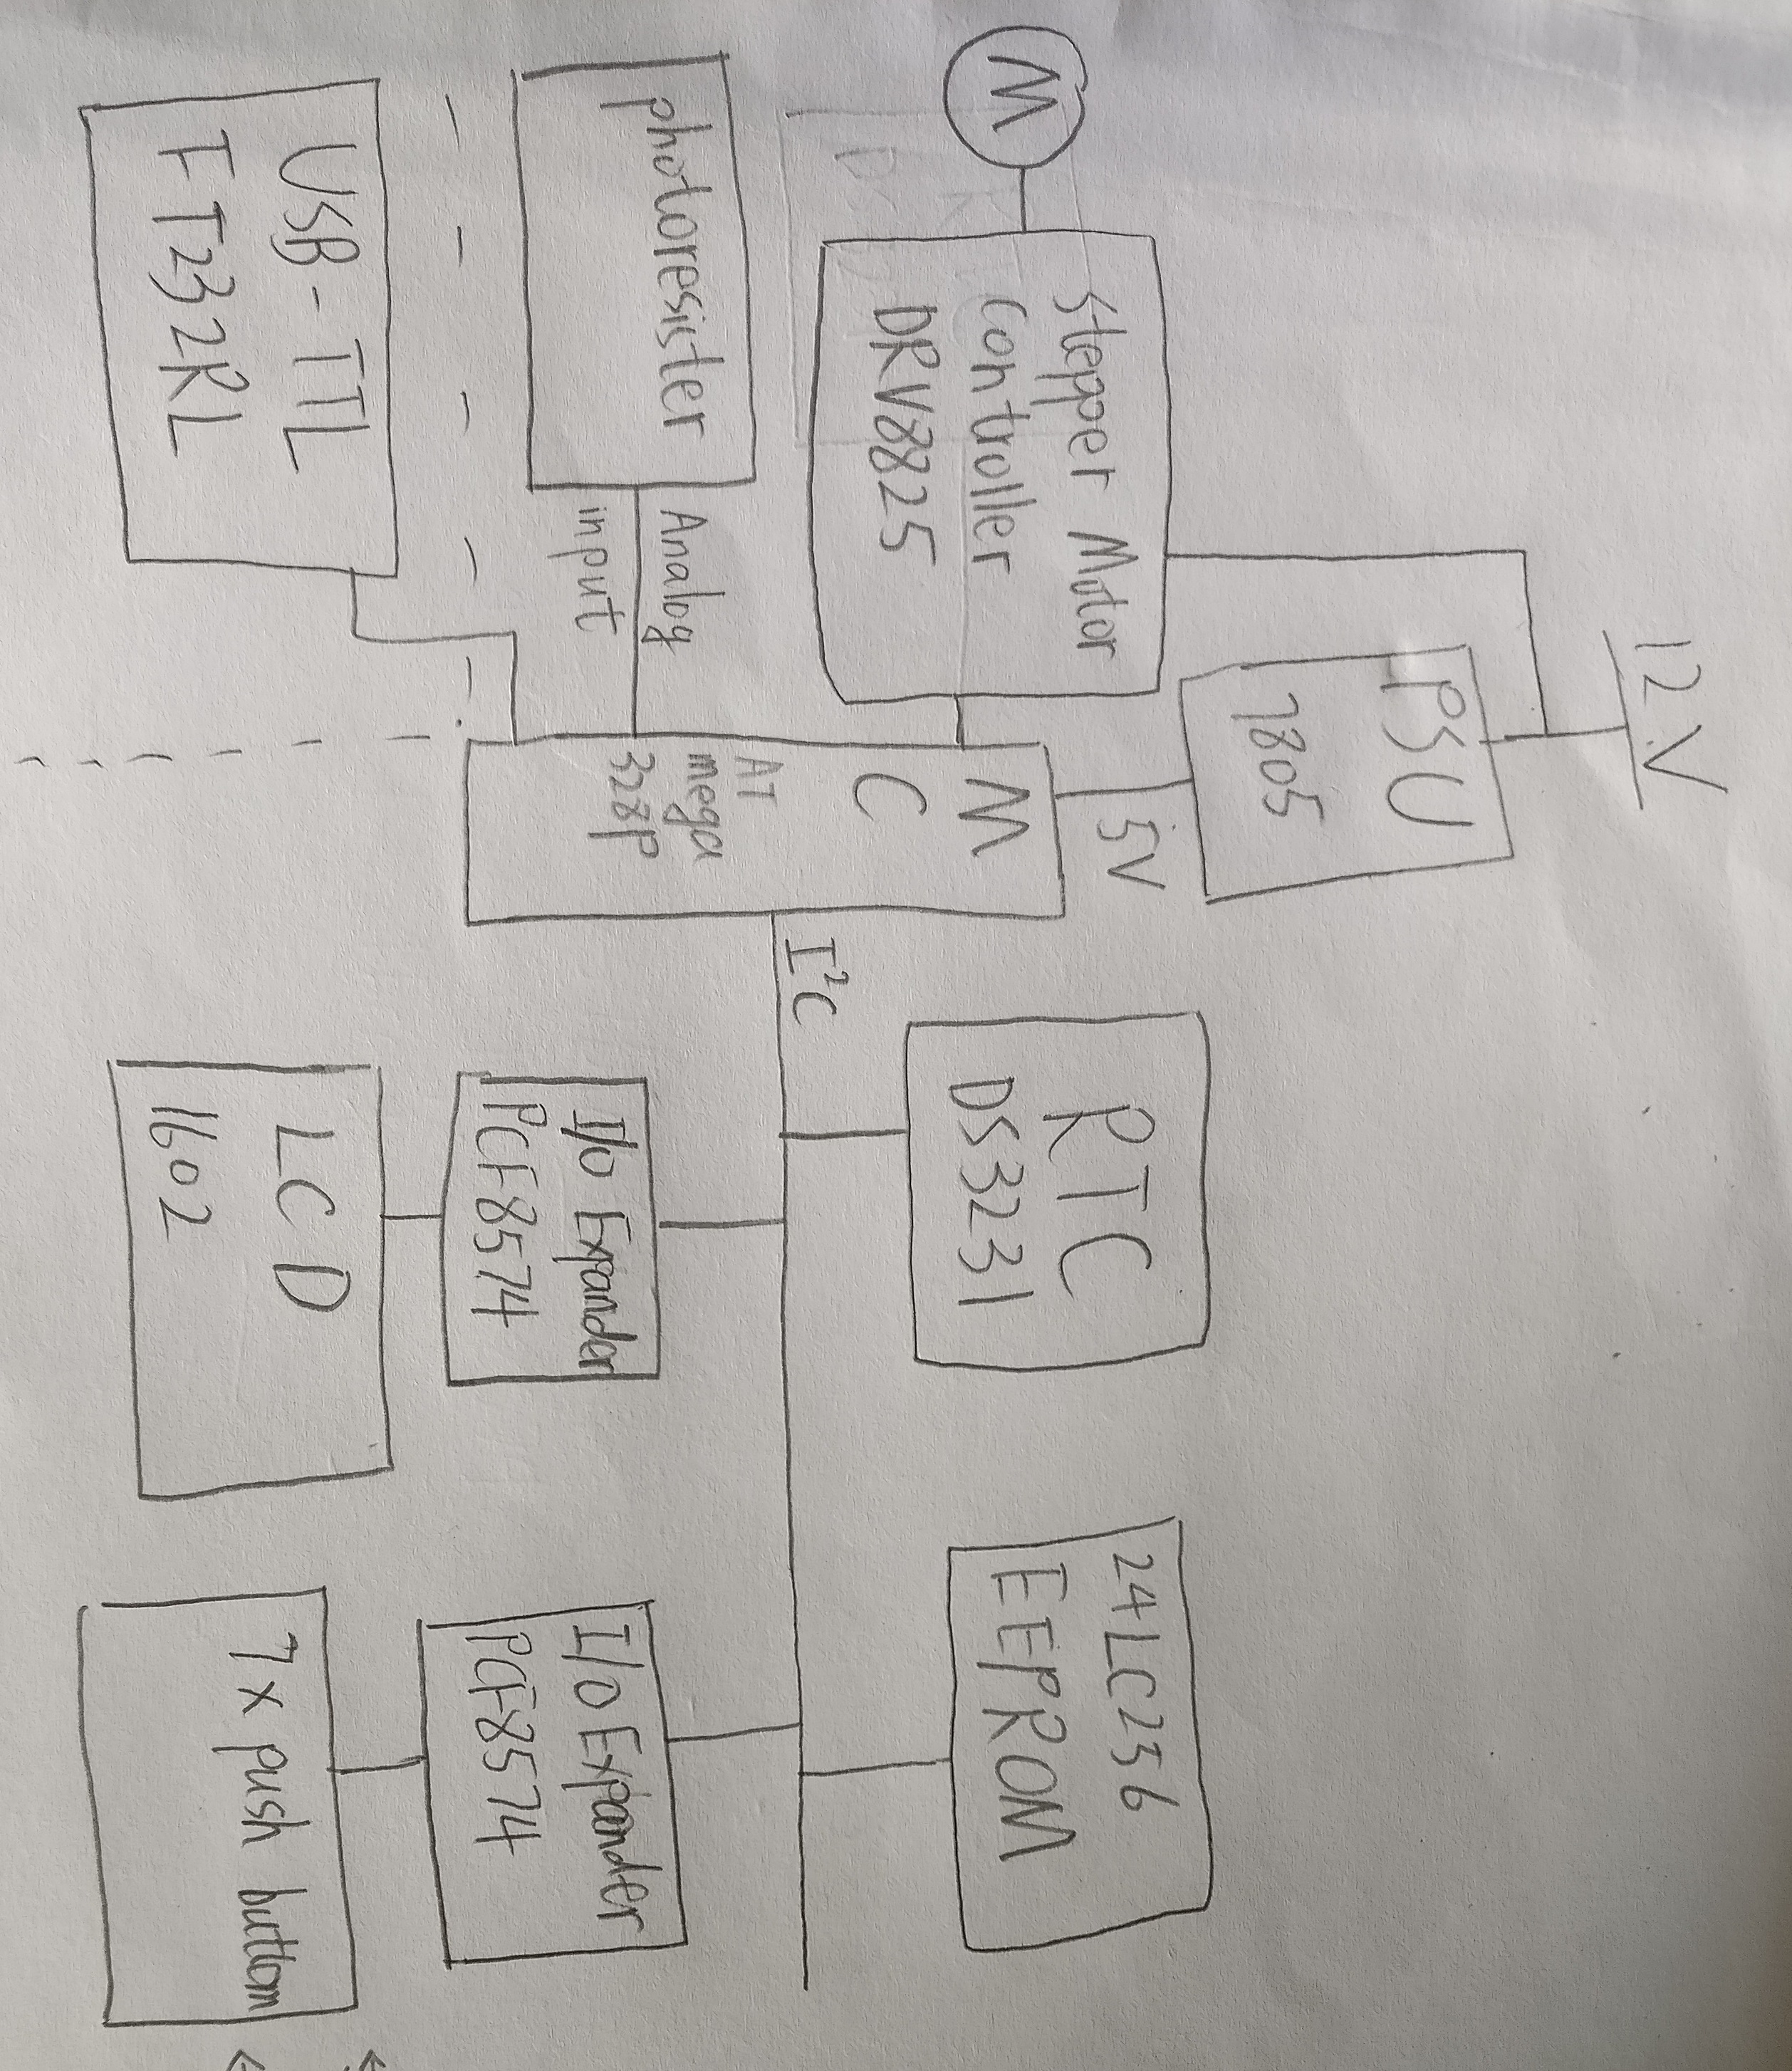 12V
PSU
7805
5V
M
Stepper Motor
Controller
DRV8825
M
C
AT
mega
328P
photoresister
Analog
input
USB-TTL
FT232RL
I²C
RTC
DS3231
24LC256
EEPROM
I/O Expander
PCF8574
LCD
1602
I/O Expander
PCF8574
7x push buttom